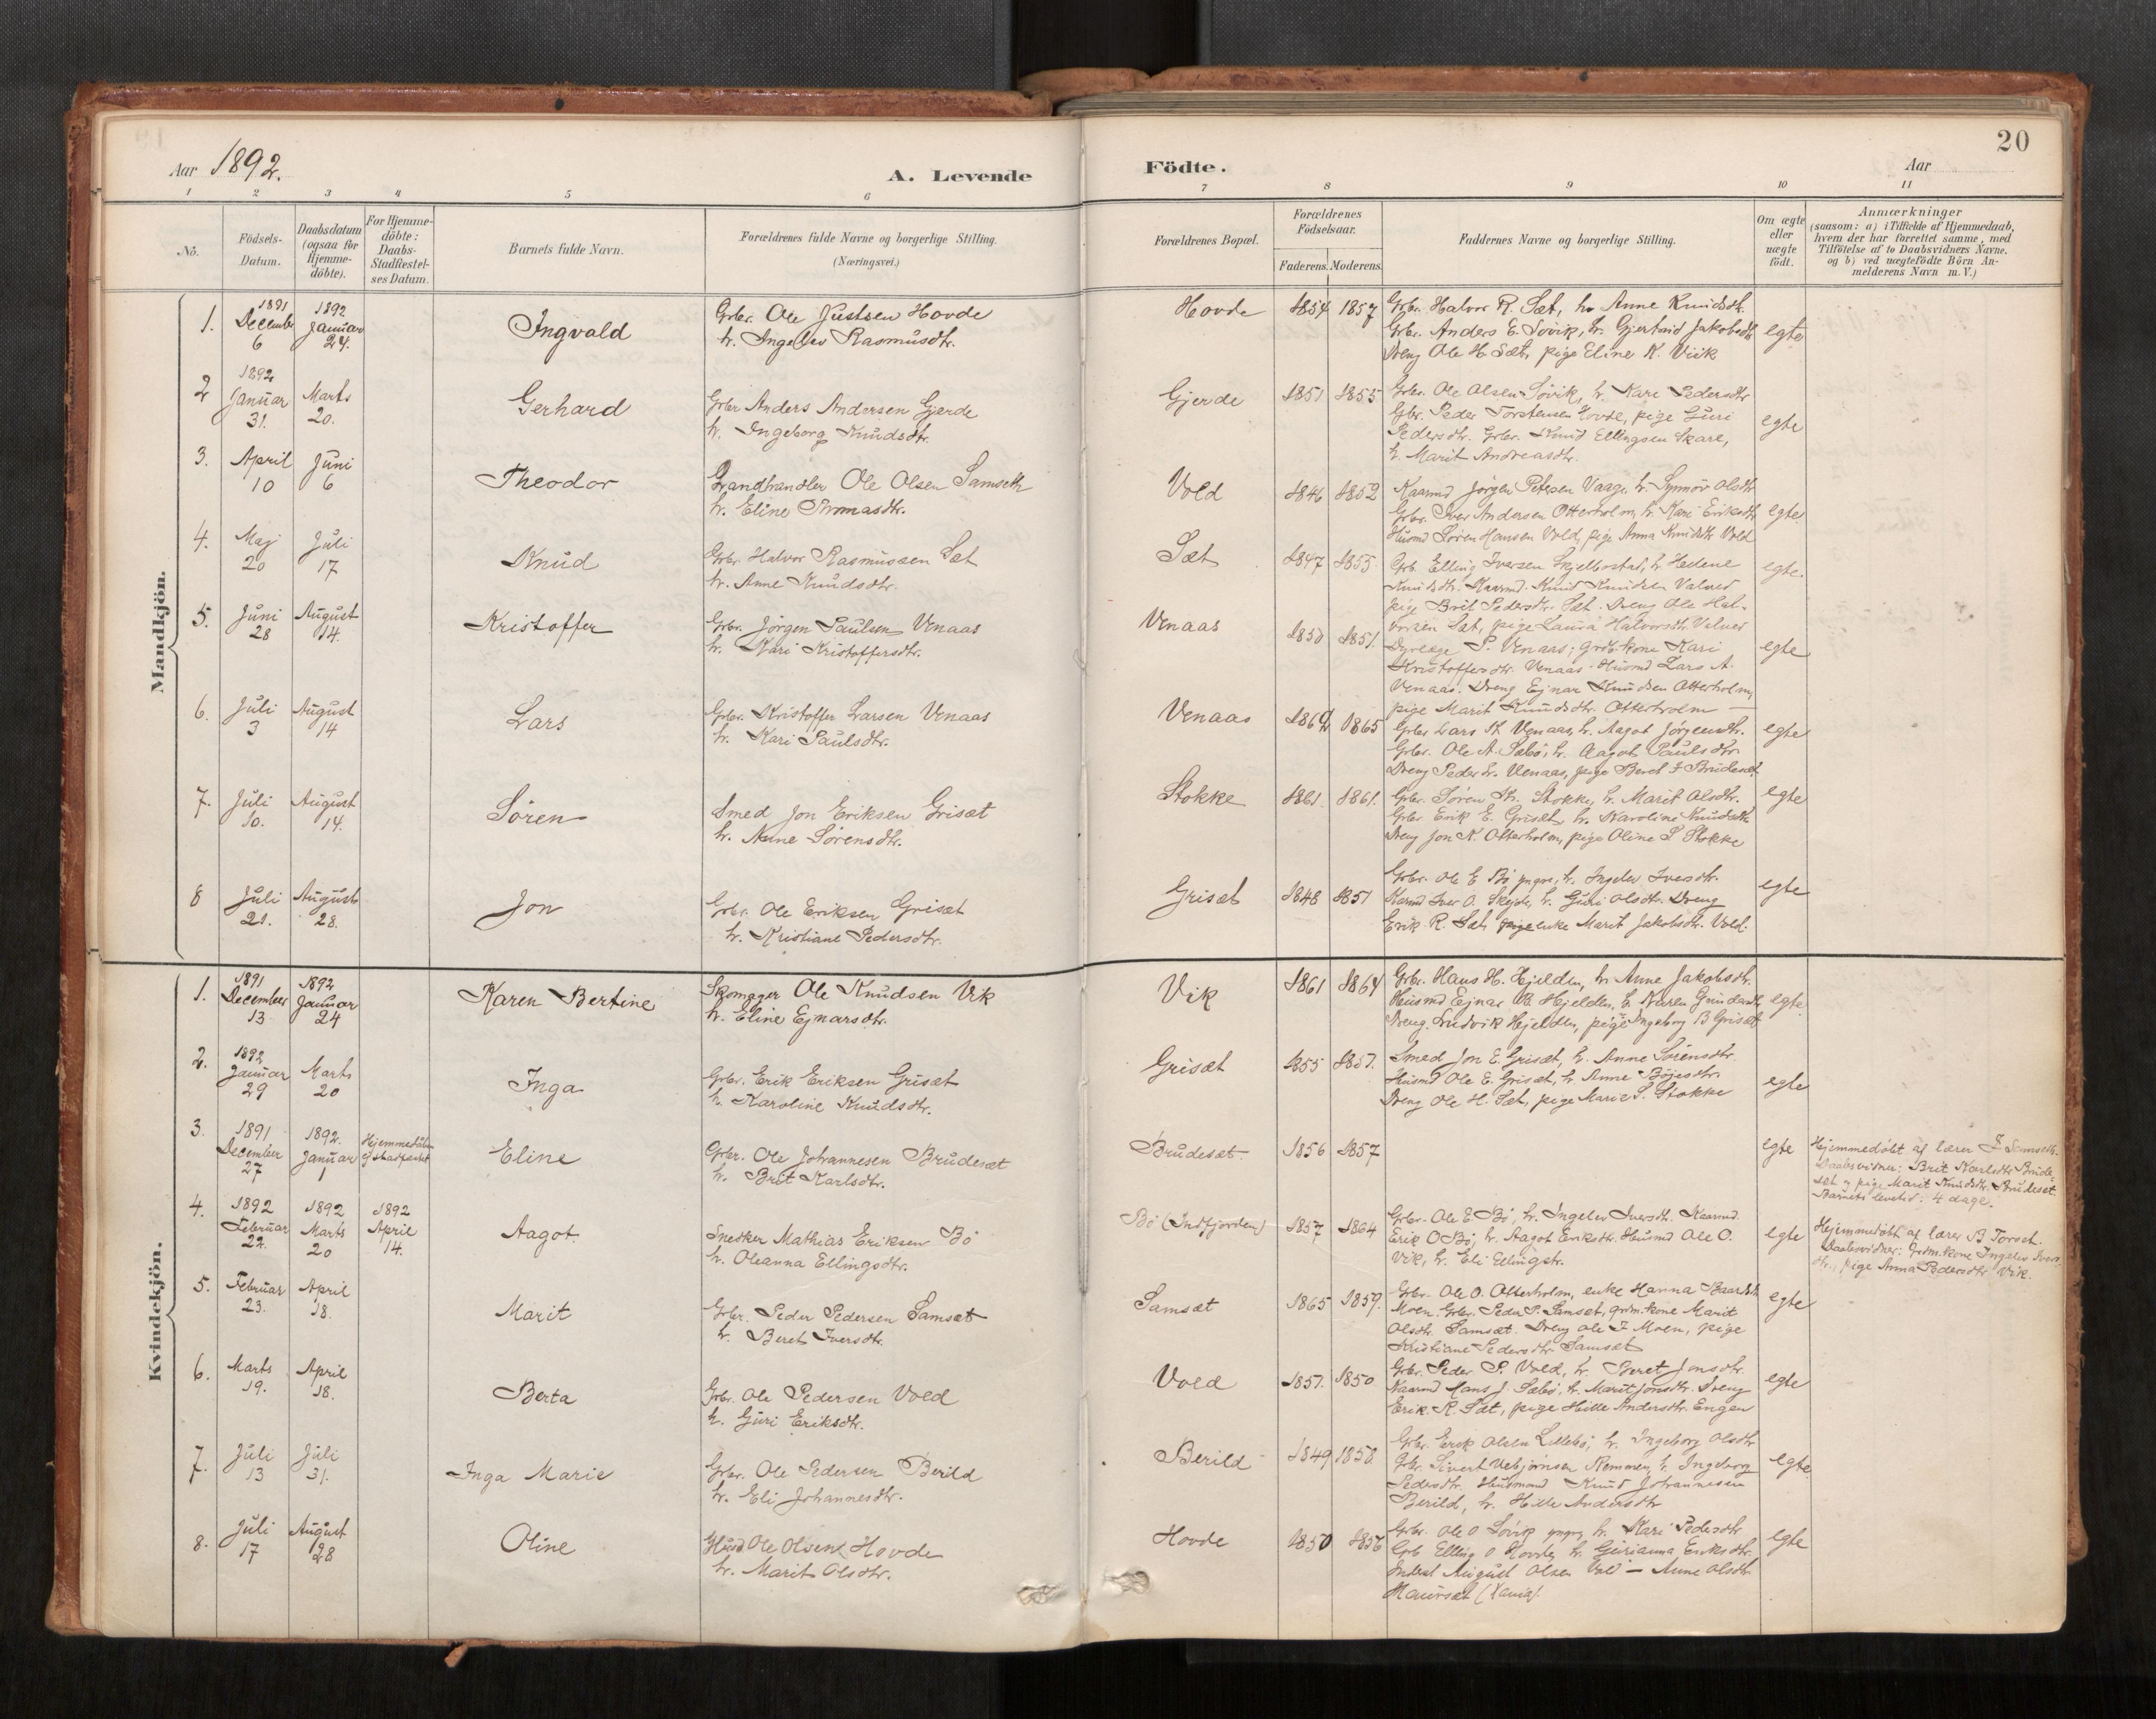 20
Aar 1892.
A. Levende Födte.
Aar
1 2 3 4 5 6 7 8 9 10 11
No.
Födsels-
Datum.
Daabsdatum
(ogsaa for
Hjemme-
döbte).
For Hjemme-
döbte:
Daabs-
Stadfæstel-
ses Datum.
Barnets fulde Navn.
Forældrenes fulde Navne og borgerlige Stilling.
(Næringsvei.)
Forældrenes Bopæl.
Forældrenes
Födselsaar.
Faderens. Moderens.
Faddernes Navne og borgerlige Stilling.
Om ægte
eller
uægte
födt.
Anmærkninger
(saasom: a) i Tilfælde af Hjemmedaab,
hvem der har forrettet samme, med
Tilföielse af to Daabsvidners Navne,
og b) ved uægtefödte Börn An-
melderens Navn m. V.)
Mandkjön.
1. 1891 December 6 1892 Januar 24. Ingvald
Grbr. Ole Justsen Hovde
h. Ingelev Rasmusdtr.
Hovde 1854 1857
Grbr. Halvor R. Sæt, h. Anne Knudsdtr.
Grbr. Anders E. Søvik, h. Gjertrud Jakobsdtr.
Dreng Ole H. Sæt, pige Eline K. Viik
egte
2 1892 Januar 31. Marts 20. Gerhard
Grbr Anders Andersen Gjerde
h. Ingeborg Knudsdtr.
Gjerde 1851 1855
Grbr. Ole Olsen Søvik, h. Kari Pedersdtr
Gbr. Peder Torstensen Hovde, pige Guri
Pedersdtr. Grbr. Knud Ellingsen Skare,
h. Marit Andreasdtr.
egte
3. April 10 Juni 6 Theodor
Landhandler Ole Olsen Samseth
h. Eline Thomasdtr.
Vold 1846 1852
Kaarmd Jørgen Petersen Vaage, h. Synnøv Olsdtr
Grbr. Iver Andersen Otterholm, h. Kari Eriksdtr
Husmd Søren Hansen Vold, pige Anna Knudsdtr Vold
egte.
4. Maj 20 Juli 17 Knud
Grbr. Halvor Rasmussen Sæt
h. Anne Knudsdtr.
Sæt 1847 1855.
Grb. Elling Iversen Skjelbostad, h. Helene
Knudsdtr. Kaarmd. Knud Knudsen
pige Brit Pedersdtr. Sæt. Dreng Ole Hal-
vorsen Sæt, pige Laura Halvorsdtr.
egte.
5. Juni 28 August 14. Kristoffer
Grbr. Jørgen Paulsen Venaas
h. Kari Kristoffersdtr.
Venaas 1850 1851.
Dyrlæge P. Venaas; grdbkone Kari
Kristoffersdtr. Venaas. Husmd Lars A.
Venaas. Dreng Ejnar Knudsen Otterholm,
pige Marit Knudsdtr. Otterholm —
egte
6. Juli 3 August 14 Lars
Grbr. Kristoffer Larsen Venaas
h. Kari Paulsdtr.
Venaas 1862 1865
Grbr Lars K Venaas, h. Aagot Jørgensdtr.
Grbr. Ole A. Sæbø, h. Aagot Paulsdtr
Dreng Peder L. Venaas, pige Beret J Brudesæt
egte
7. Juli 10. August 14. Søren
Smed Jon Eriksen Grisæt
h. Anne Sørensdtr.
Stokke 1861. 1861.
Grbr. Søren Kr. Stokke, h. Marit Olsdtr.
Grbr Erik E. Grisæt, h. Karoline Knudsdtr
Dreng Jon N. Otterholm, pige Oline S Stokke
egte
8 Juli 21. August 28. Jon
Grbr. Ole Eriksen Grisæt
h. Kristiane Pedersdtr.
Grisæt 1848 1851
Grbr. Ole E Bø yngre, h. Ingelev Iversdtr.
Karmd Iver O. h. Guri Olsdtr. Dreng
Erik R. Sæt, enke Marit Jakobsdtr. Vold.
egte
Kvindekjön.
1. 1891 December 13 1892 Januar 24 Karen Bertine
Skomager Ole Knudsen Vik
h. Eline Ejnarsdtr.
Vik 1861 1864
Grbr. Hans H. Hjelden, h. Anne Jakobsdtr.
Husmd Ejnar B. Hjelden, h. Karen
Dreng Ludvik Hjelden, pige Ingeborg B Grisæt
egte.
2. 1892 Januar 29 Marts 20 Inga
Grbr. Erik Eriksen Grisæt
h. Karoline Knudsdtr.
Grisæt 1855 1857.
Smed Jon E. Grisæt, h. Anne Sørensdtr.
Husmd Ole E. Grisæt, h. Anne Bøjesdtr.
Dreng Ole H. Sæt, pige Marie S. Stokke
egte
3. 1891 December 27 1892. Januar 1 Eline
Grbr. Ole Johannesen Brudesæt
h. Brit Karlsdtr.
Brudesæt 1856 1857
egte
Hjemmedøbt af lærer Samseth.
Daabsvidner: Brit Karlsdtr Brude-
sæt og pige Marit Knudsdtr. Brudeset.
Barnets levetid: 4 dage.
4. 1892 Februar 22. 1892 Marts 20 1892 April 14. Aagot
Snedker Mathias Eriksen Bø
h. Oleanna Ellingsdtr.
Bø (Indfjorden) 1857 1864
Grbr. Ole E. Bø, h. Ingelev Iversdtr. Kaarmd.
Erik O Bø, h. Aagot Eriksdtr. Husmd Ole O.
Vik, h. Eli Ellingsdtr.
egte
Hjemmedøbt af lærer B Torset.
Daabsvidner: Grdm.kone Ingelev Ivers-
dtr., pige Anna Pedersdtr Vik.
5. Februar 23. April 18. Marit
Grbr. Peder Pedersen Samsæt
h. Beret Iversdtr.
Samsæt 1865 1859.
Grbr. Ole O. Otterholm, enke Hanna Baardsdtr
Moen. Grbr. Peder P. Samsæt, grdm.kone Marit
Olsdtr. Samsæt. Dreng Ole I Moen, pige
Kristiane Pedersdtr Samsæt
egte
6. Marts 19. April 18. Berta
Grbr. Ole Pedersen Vold
h. Guri Eriksdtr.
Vold 1857. 1850
Grbr. Peder P. Vold, h. Beret Jonsdtr
Kaarmd Hans J. Sæbø, h. Marit Jonsdtr. Dreng
Erik R. Sæt, pige Hille Andersdtr. Engen
egte
7. Juli 13 Juli 31. Inga Marie
Grbr. Ole Pedersen Berild
h. Eli Johannesdtr.
Berild 1849 1858
Grbr. Erik Olsen Lillebø, h. Ingeborg Olsdtr
Grbr. Sivert Vebjørnsen Remmen, h. Ingeborg
Pedersdtr. Husmand Knud Johannesen
Berild, h. Hille Andersdtr
egte
8. Juli 17 August 28 Oline
Husmd Ole Olsen Hovde
h. Marit Olsdtr.
Hovde 1850 1856
Grbr. Ole O Søvik yngre, h. Kari Pedersdtr
Grb Elling O Hovde, h. Gurianna Eriksdtr.
Inderst August Olsen Vold — Anne Olsdtr
egte